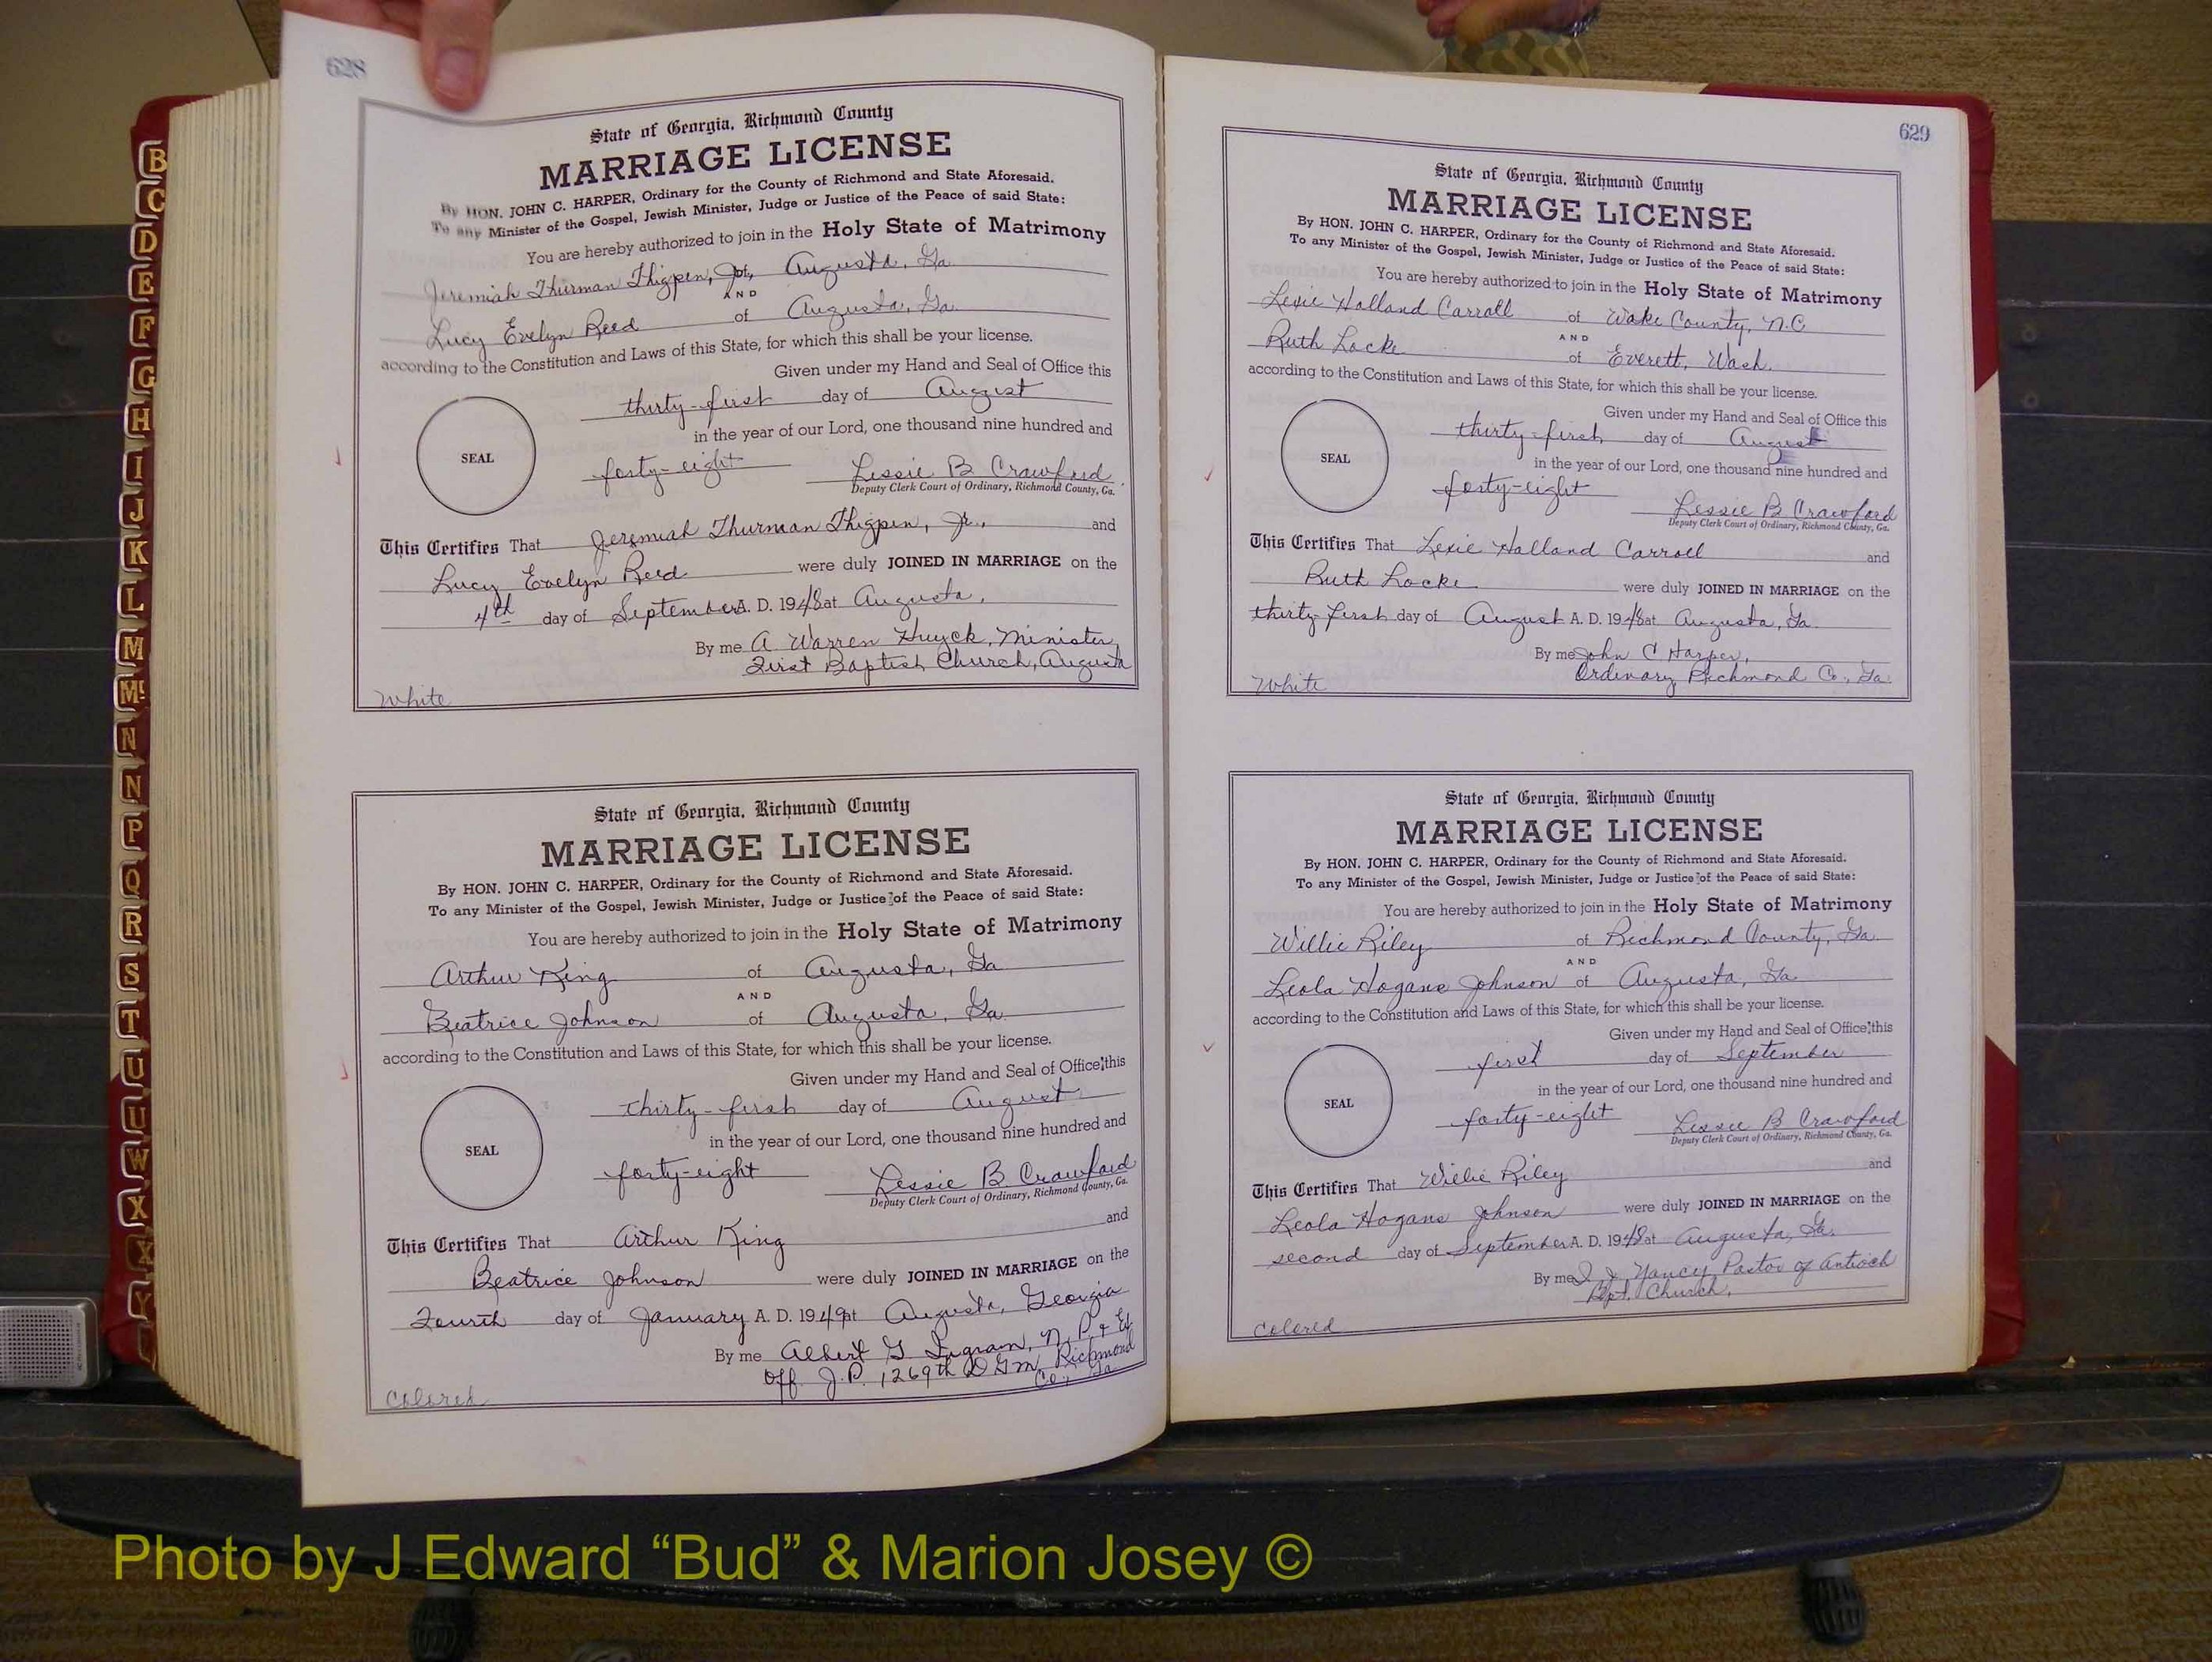 628
State of Georgia, Richmond County
MARRIAGE LICENSE
By HON. JOHN C. HARPER, Ordinary for the County of Richmond and State Aforesaid.
To any Minister of the Gospel, Jewish Minister, Judge or Justice of the Peace of said State:
You are hereby authorized to join in the Holy State of Matrimony
Jeremiah Thurman Thigpen, Jr. of, Augusta, Ga
AND
Lucy Evelyn Reed of Augusta, Ga.
according to the Constitution and Laws of this State, for which this shall be your license.
Given under my Hand and Seal of Office this
thirty-first day of August
in the year of our Lord, one thousand nine hundred and
SEAL
forty-eight Lessie B Crawford
Deputy Clerk Court of Ordinary, Richmond County, Ga.
This Certifies That Jeremiah Thurman Thigpen, Jr., and
Lucy Evelyn Reed were duly JOINED IN MARRIAGE on the
4th day of September A. D. 1948 at Augusta,
By me A. Warren Huyck, Minister,
First Baptist Church, Augusta
White
State of Georgia, Richmond County
MARRIAGE LICENSE
By HON. JOHN C. HARPER, Ordinary for the County of Richmond and State Aforesaid.
To any Minister of the Gospel, Jewish Minister, Judge or Justice of the Peace of said State:
You are hereby authorized to join in the Holy State of Matrimony
Arthur King of Augusta, Ga
AND
Beatrice Johnson of Augusta, Ga.
according to the Constitution and Laws of this State, for which this shall be your license.
Given under my Hand and Seal of Office this
thirty-first day of August
in the year of our Lord, one thousand nine hundred and
SEAL
forty-eight Lessie B. Crawford
Deputy Clerk Court of Ordinary, Richmond County, Ga.
This Certifies That Arthur King and
Beatrice Johnson were duly JOINED IN MARRIAGE on the
Fourth day of January A. D. 1949 at Augusta, Georgia
By me Albert G. Ingram, N. P. & Ex
Off. J.P. 1269th D G m, Richmond
Co., Ga
Colored
629
State of Georgia, Richmond County
MARRIAGE LICENSE
By HON. JOHN C. HARPER, Ordinary for the County of Richmond and State Aforesaid.
To any Minister of the Gospel, Jewish Minister, Judge or Justice of the Peace of said State:
You are hereby authorized to join in the Holy State of Matrimony
Lexie Holland Carroll of Wake County, N.C.
AND
Ruth Locke of Everett, Wash.
according to the Constitution and Laws of this State, for which this shall be your license.
Given under my Hand and Seal of Office this
thirty-first day of August
in the year of our Lord, one thousand nine hundred and
SEAL
forty-eight Lessie B Crawford
Deputy Clerk Court of Ordinary, Richmond County, Ga.
This Certifies That Lexie Holland Carroll and
Ruth Locke were duly JOINED IN MARRIAGE on the
thirty first day of August A. D. 1948 at Augusta, Ga
By me John C Harper,
Ordinary Richmond Co., Ga.
White
State of Georgia, Richmond County
MARRIAGE LICENSE
By HON. JOHN C. HARPER, Ordinary for the County of Richmond and State Aforesaid.
To any Minister of the Gospel, Jewish Minister, Judge or Justice of the Peace of said State:
You are hereby authorized to join in the Holy State of Matrimony
Willie Riley of Richmond County, Ga.
AND
Leola Hogans Johnson of Augusta, Ga
according to the Constitution and Laws of this State, for which this shall be your license.
Given under my Hand and Seal of Office this
first day of September
in the year of our Lord, one thousand nine hundred and
SEAL
forty-eight Lessie B Crawford
Deputy Clerk Court of Ordinary, Richmond County, Ga.
This Certifies That Willie Riley and
Leola Hogans Johnson were duly JOINED IN MARRIAGE on the
second day of September A. D. 1948 at Augusta, Ga.
By me Yancy Pastor of Antioch
Bpt. Church.
Colored
B
C
D
E
F
G
H
I
J
K
L
M
Mc
N
N
P
Q
R
S
T
U
U
W
X
X
Y
Photo by J Edward “Bud” & Marion Josey ©